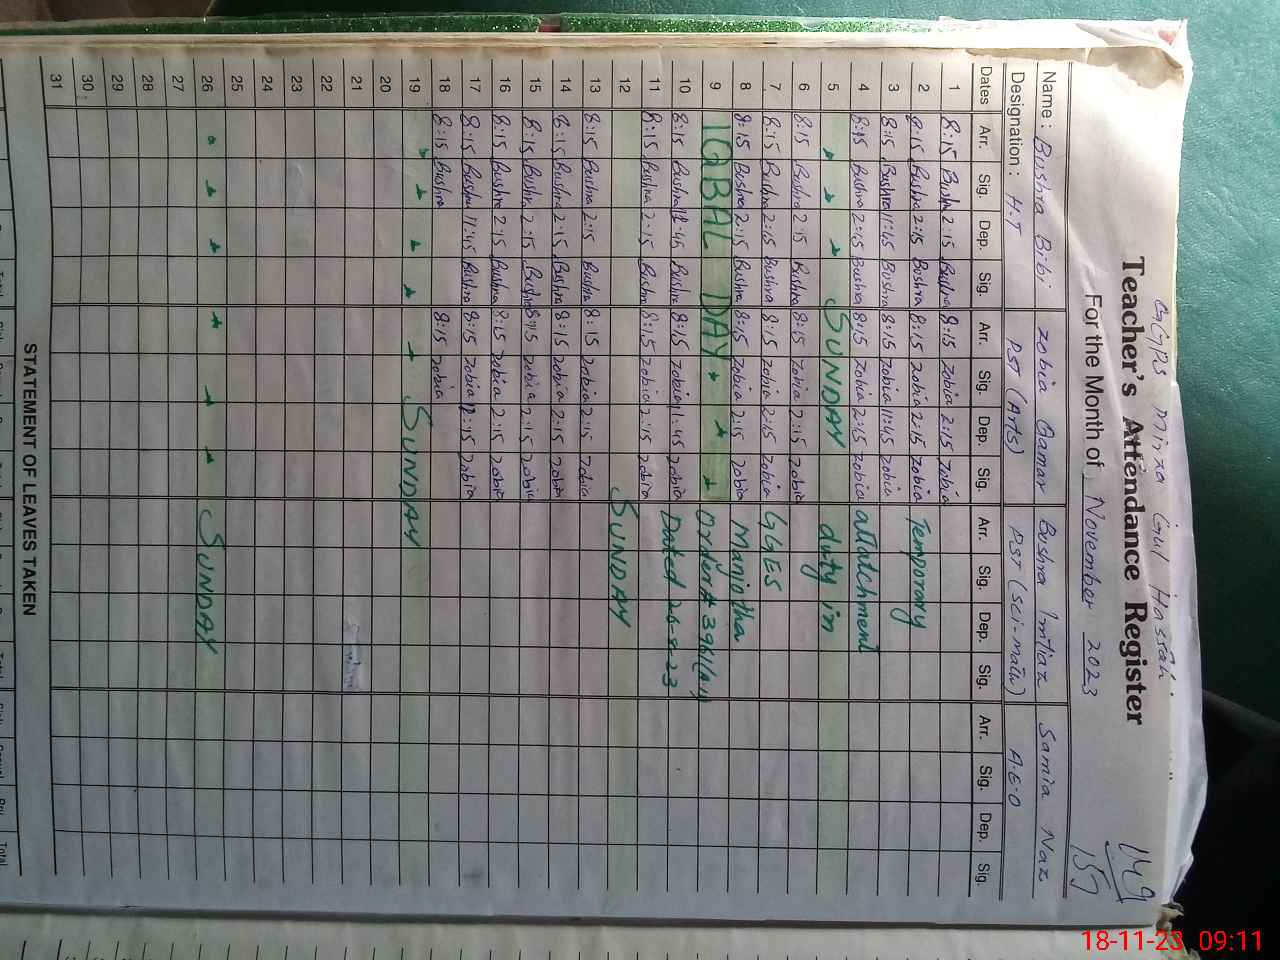 GGPS Mirza Gul Hassan
Teacher's Attendance Register
For the Month of, November 2023
Name: Bushra Bibi Zobia Qamar Bushra Imtiaz Samia Naz
Designation: H.T PST (Arts) PST (Sci-math) A.E.O
Dates Arr. Sig. Dep. Sig. Arr. Sig. Dep. Sig. Arr. Sig. Dep. Sig. Arr. Sig. Dep. Sig.
1 8:15 Bushra 2:15 Bushra 8:15 Zobia 2:15 Zobia
2 8:15 Bushra 2:15 Bushra 8:15 Zobia 2:15 Zobia Temporary
3 8:15 Bushra 11:45 Bushra 8:15 Zobia 11:45 Zobia
4 8:15 Bushra 2:15 Bushra 8:15 Zobia 2:15 Zobia attatchment
5 SUNDAY duty in
6 8:15 Bushra 2:15 Bushra 8:15 Zobia 2:15 Zobia
7 8:15 Bushra 2:15 Bushra 8:15 Zobia 2:15 Zobia GGES
8 8:15 Bushra 2:15 Bushra 8:15 Zobia 2:15 Zobia Manjotha
9 IQBAL DAY Order#
10 8:15 Bushra 11:45 Bushra 8:15 Zobia 11:45 Zobia Dated 26-8-23
11 8:15 Bushra 2:15 Bushra 8:15 Zobia 2:15 Zobia
12 SUNDAY
13 8:15 Bushra 2:15 Bushra 8:15 Zobia 2:15 Zobia
14 8:15 Bushra 2:15 Bushra 8:15 Zobia 2:15 Zobia
15 8:15 Bushra 2:15 Bushra 8:15 Zobia 2:15 Zobia
16 8:15 Bushra 2:15 Bushra 8:15 Zobia 2:15 Zobia
17 8:15 Bushra 11:45 Bushra 8:15 Zobia Zobia
18 8:15 Bushra 8:15 Zobia
19 SUNDAY
20
21
22
23
24
25
26 SUNDAY
27
28
29
30
31
STATEMENT OF LEAVES TAKEN
18-11-23 09:11